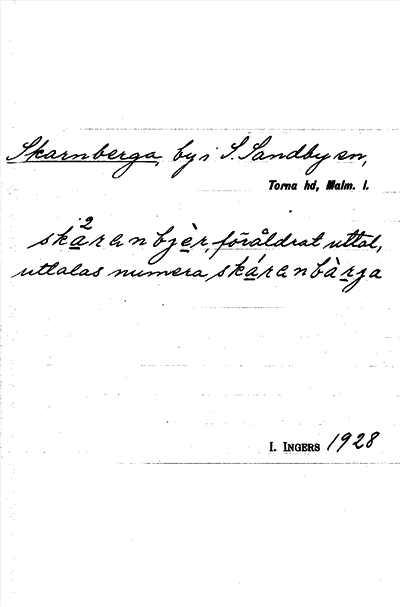 Skarnberga, by i S. Sandby sn,
Torna hd, Malm. l.
skáranbjèr, föråldrat uttal,
uttalas numera skáranbàrga
I. INGERS 1928